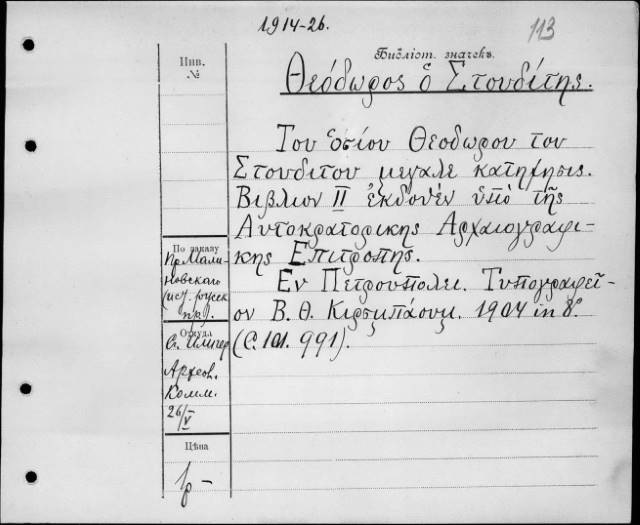 1914-26.
113
Инв.
№
Библіот. значекъ.
Θεόδωρος ὁ Στουδίτης.
Του ὁσίου Θεοδωρου του
Στουδιτου μεγαλε κατηχησις.
Βιβλιον II ἐκδονέν ὑπὸ τῆς
Αυτοκρατορικης Αρχαιογραφι-
κης Επιτροπης.
Εν Πετρουπολει. Τυπογραφεῖ-
ον Β. Θ. Κιρσμπάουμ. 1904 in 8º
(С. 101. 991).
По заказу
пр. Мали-
новскаго
(ист. русск
пр.).
Откуда
Археов.
Комм.
26/V
Цѣна
1р -